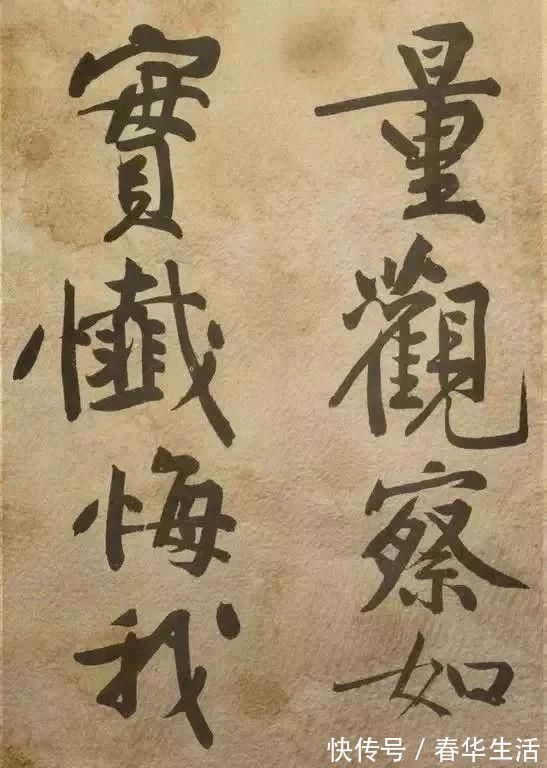 量觀察如
實懺悔我
快传号／春华生活